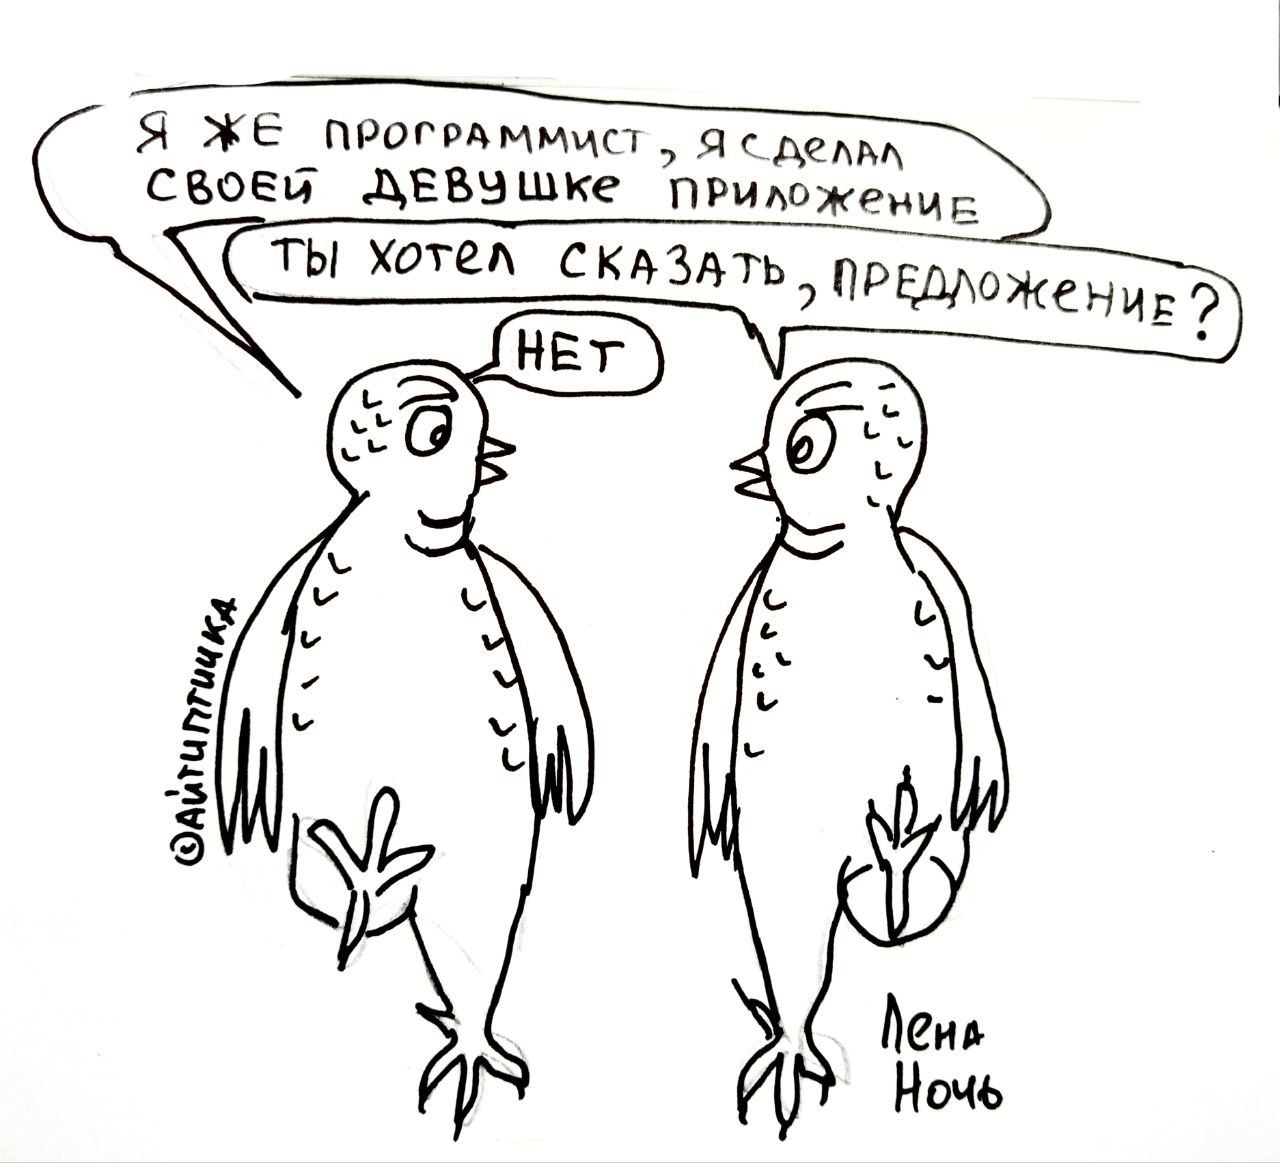 Я ЖЕ ПРОГРАММИСТ, Я СДЕЛАЛ
СВОЕЙ ДЕВУШКЕ ПРИЛОЖЕНИЕ
ТЫ ХОТЕЛ СКАЗАТЬ, ПРЕДЛОЖЕНИЕ?
НЕТ
©АЙТИПТИЧКА
Лена
Ночь